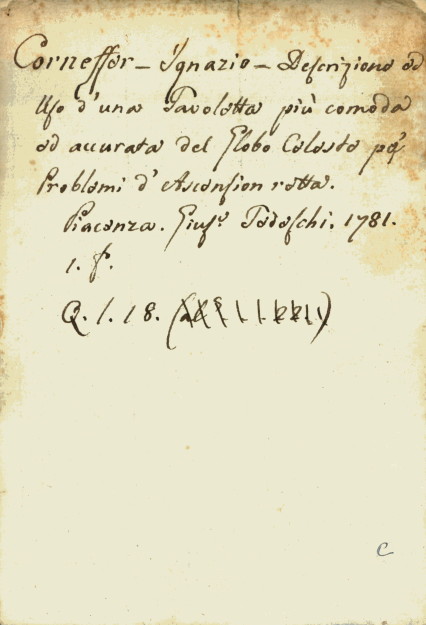 Corneffer - Ignazio - Descrizione ed
Uso d'una Tavoletta più comoda
ed accurata del Globo Celeste pe'
Problemi d'Ascension retta.
Piacenza. Gius.e Tedeschi. 1781.
1. f.
Q. 1. 18.
c